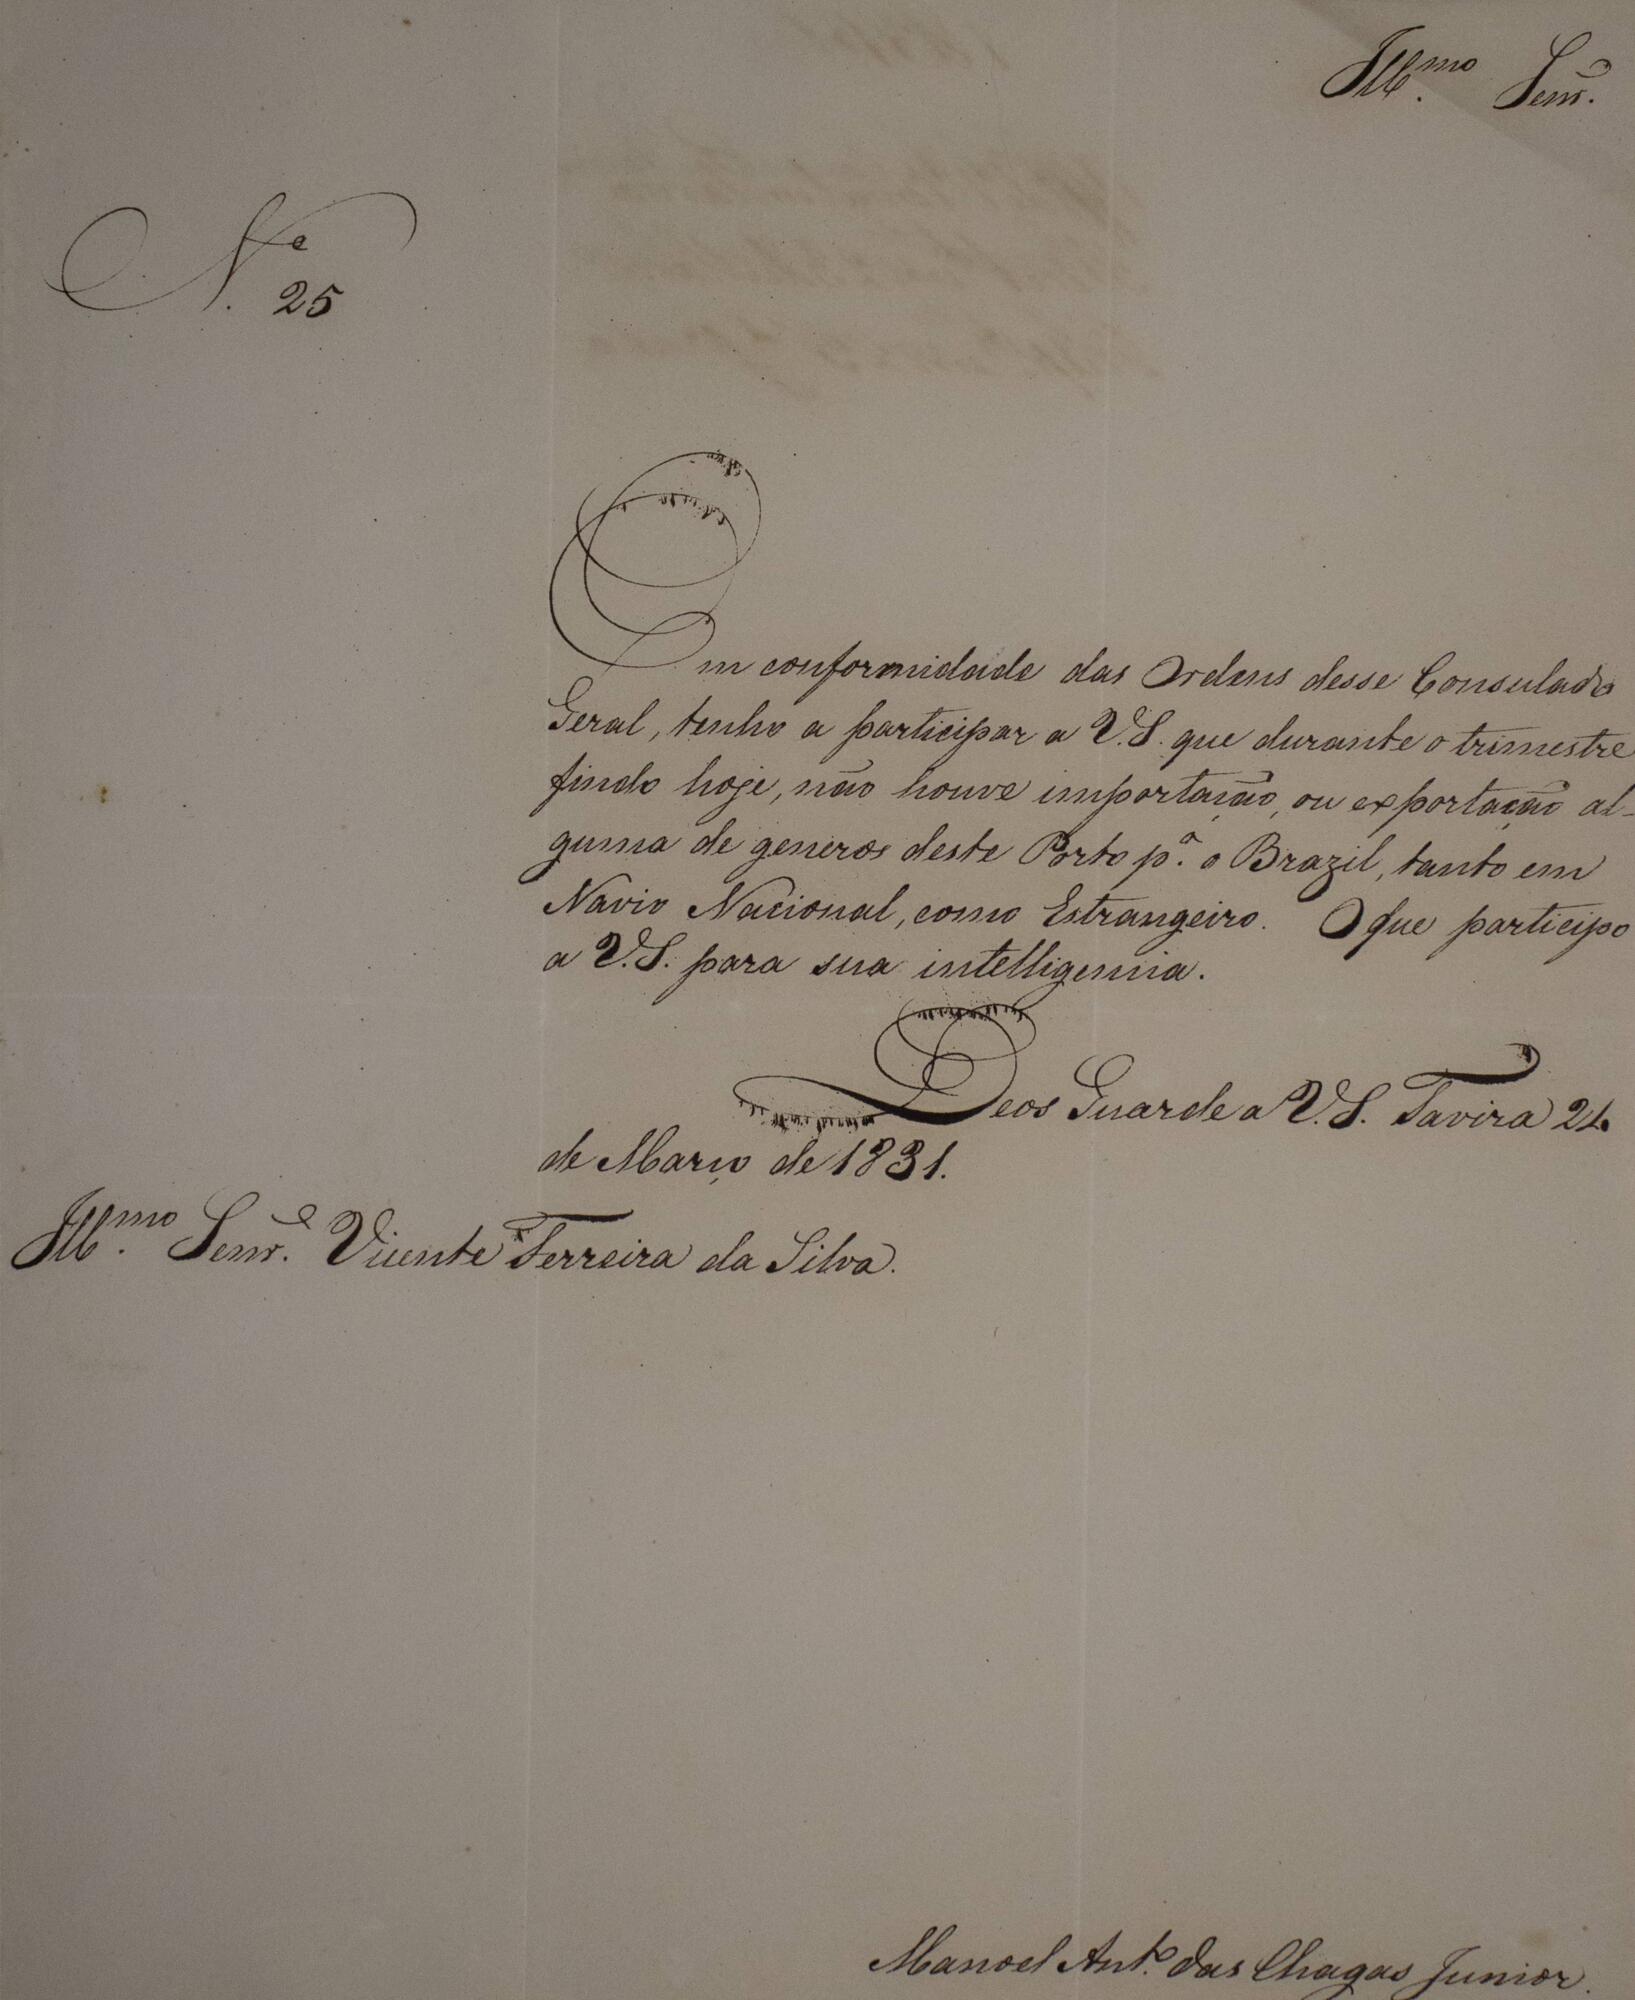 Ill.mo Senr.
N.e 25
Em conformidade das Ordens desse Consulado
Geral, tenho a participar a V.S. que durante o trimestre
findo hoje, não houve importação, ou exportação al-
guma de generos deste Porto p.a o Brazil, tanto em
Navio Nacional, como Estrangeiro. O que participo
a V.S. para sua intelligencia.
Deos Guarde a V.S. Tavira 24
de Março de 1831.
Ill.mo Senr.e Vicente Ferreira da Silva.
Manoel Ant.o das Chagas Junior.